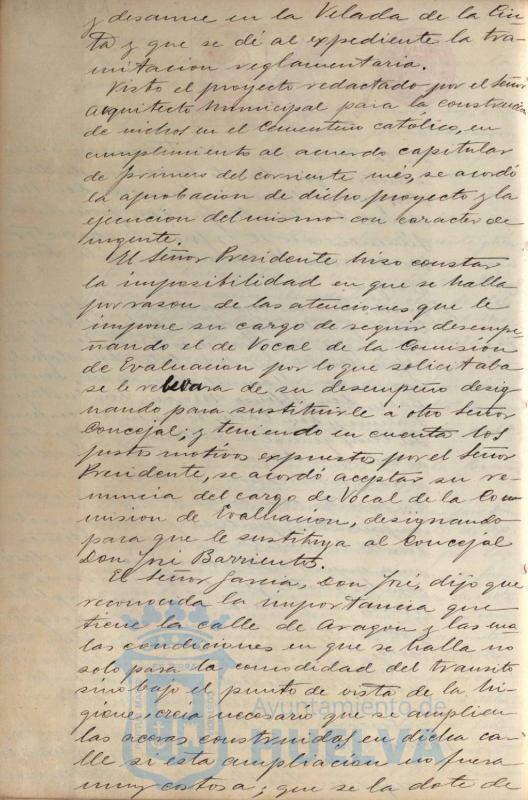 y desarme en la Velada de la Cin-
ta y que se dé al expediente la tra-
mitacion reglamentaria.
Visto el proyecto redactado por el Señor
Arquitecto Municipal para la construccion
de nichos en el Cementerio católico, en
cumplimiento al acuerdo capitular
de primero del corriente més, se acordó
la aprobacion de dicho proyecto y la
ejecucion del mismo con caracter de
urgente.
El Señor Presidente hizo constar
la imposibilidad en que se halla
por rason de las atenciones que le
impone su cargo de seguir desempe-
ñando el de Vocal de la Comision
de Evaluacion por lo que solicitaba
se le relevara de su desempeño desig-
nando para sustituirle á otro Señor
Concejal; y teniendo en cuenta los
justos motivos expuestos por el Señor
Presidente, se acordó aceptar su re-
nuncia del cargo de Vocal de la Co-
mision de Evaluacion, designando
para que le sustituya al Concejal
Don José Barrientos.
El Señor Garcia, Don José, dijo que
reconocida la importancia que
tiene la calle de Aragon y las ma-
las condiciones en que se halla no
solo para la comodidad del transito
sino bajo el punto de vista de la hi-
giene, creia necesario que se amplien
las aceras construidas en dicha ca-
lle si esta ampliacion no fuera
muy costosa; que se la dote de
Ayuntamiento de
HUELVA